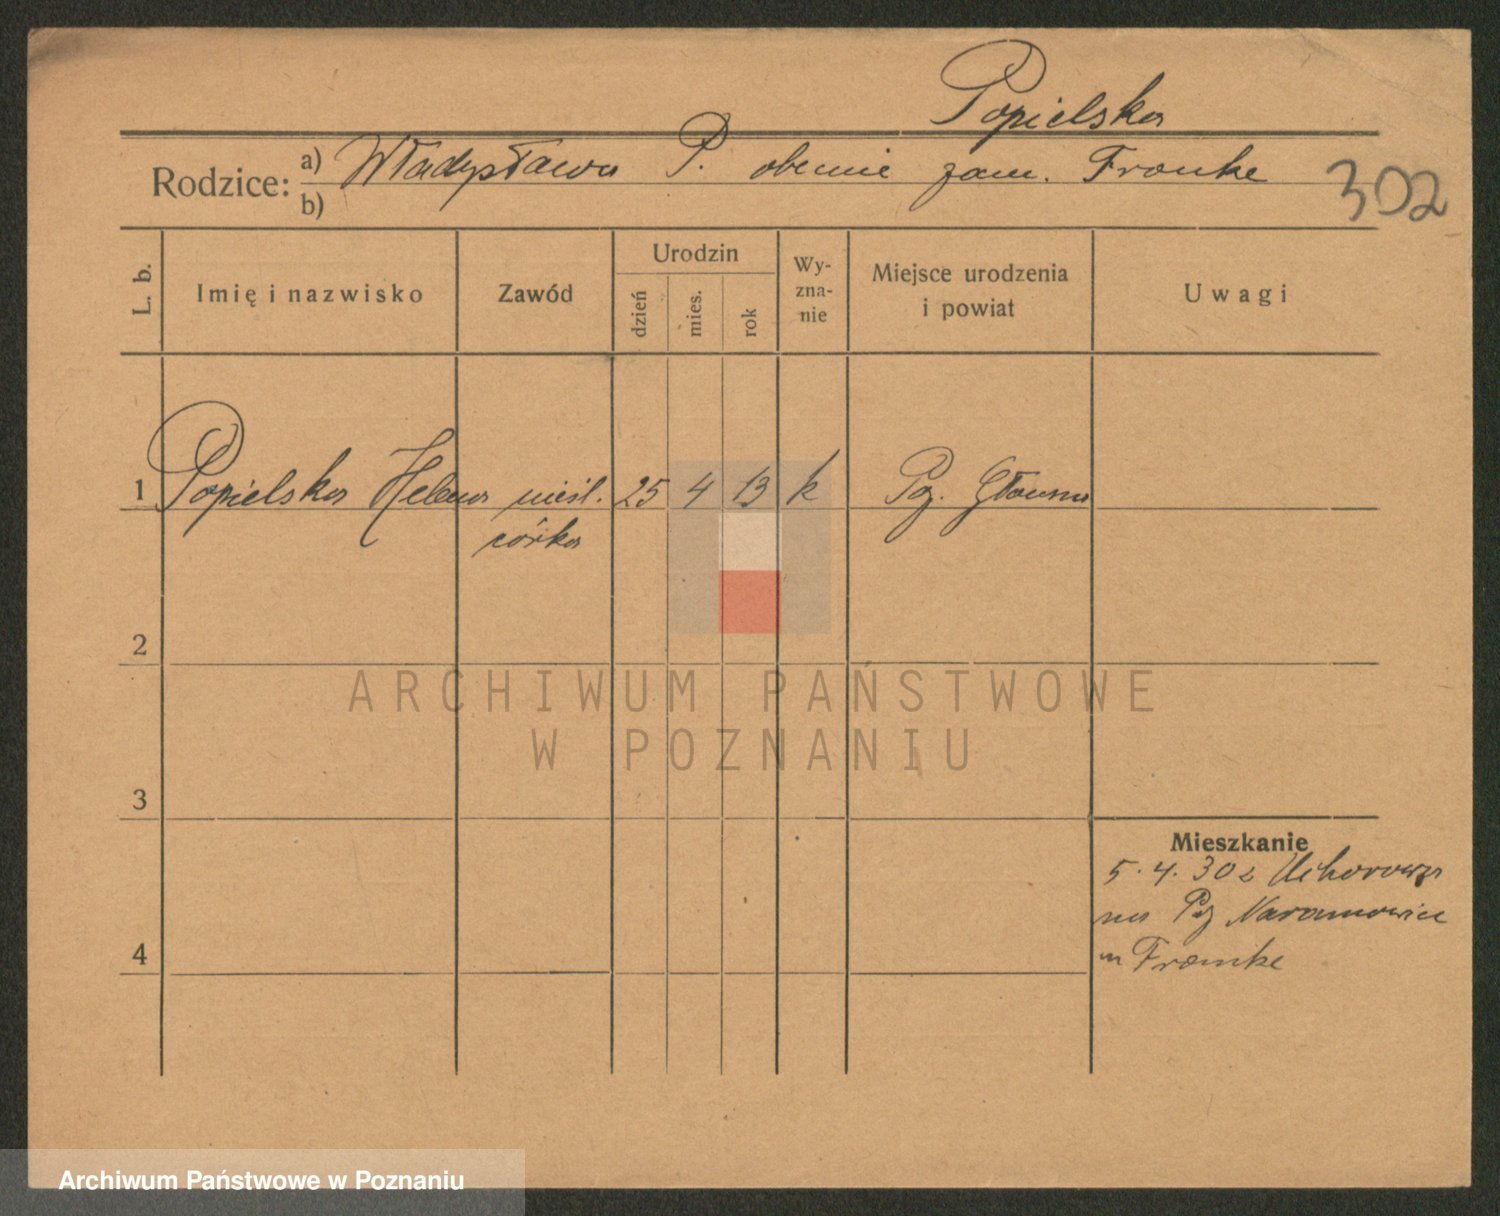 Popielska
Rodzice: a) Władysława P. obecnie zam. Franke
b)
302
L. b. Imię i nazwisko Zawód Urodzin dzień mies. rok Wy-zna-nie Miejsce urodzenia i powiat Uwagi
1 Popielska Helena nieśl. 25 4 13 k Poz. Główna
córka
2
ARCHIWUM PAŃSTWOWE
W POZNANIU
3
Mieszkanie
5.4.30 z
na Poz Naramowice
m Franke
4
Archiwum Państwowe w Poznaniu